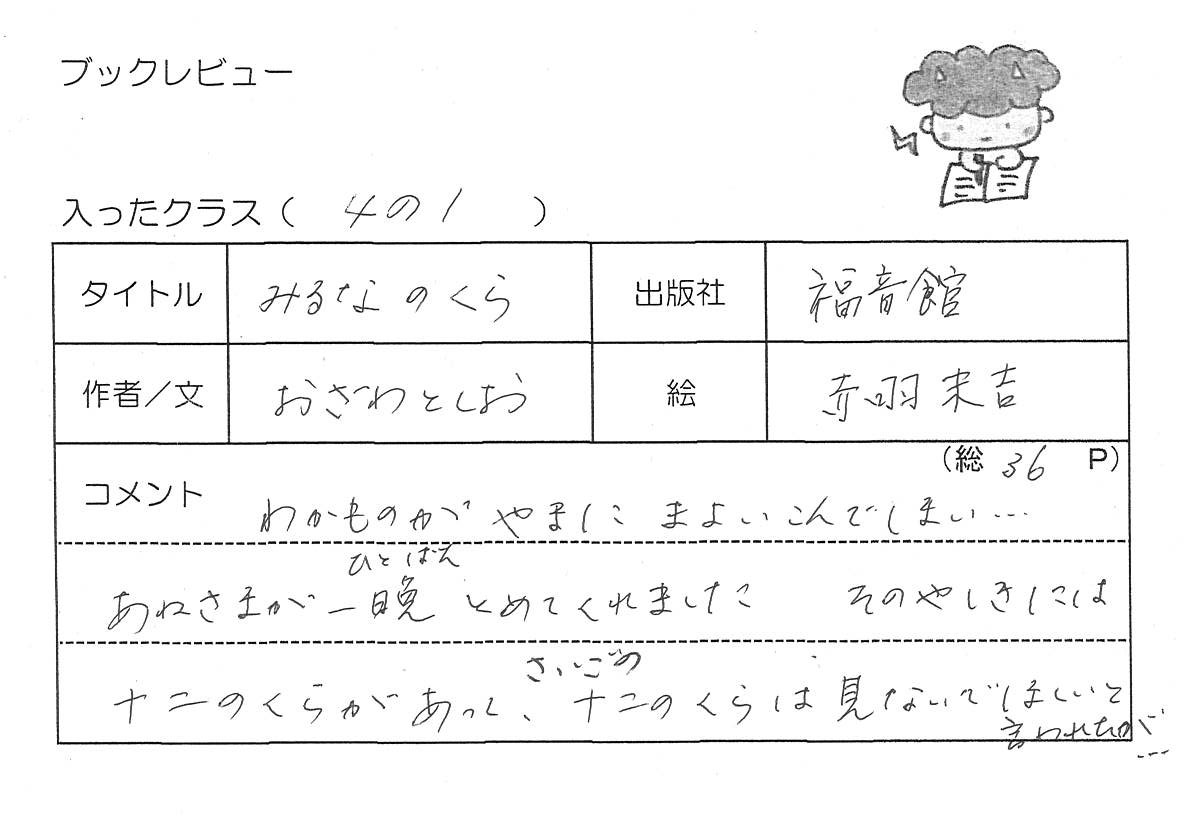 ブックレビュー
入ったクラス（ 4の1 ）
タイトル みるなのくら 出版社 福音館
作者／文 おざわとしお 絵 赤羽末吉
（総 36 P）
コメント わかものが やまに まよいこんでしまい…
ひとばん
あねさまが一晩 とめてくれました そのやしきには
さいごの
十二のくらがあって、十二のくらは見ないでほしいと
言われたが…